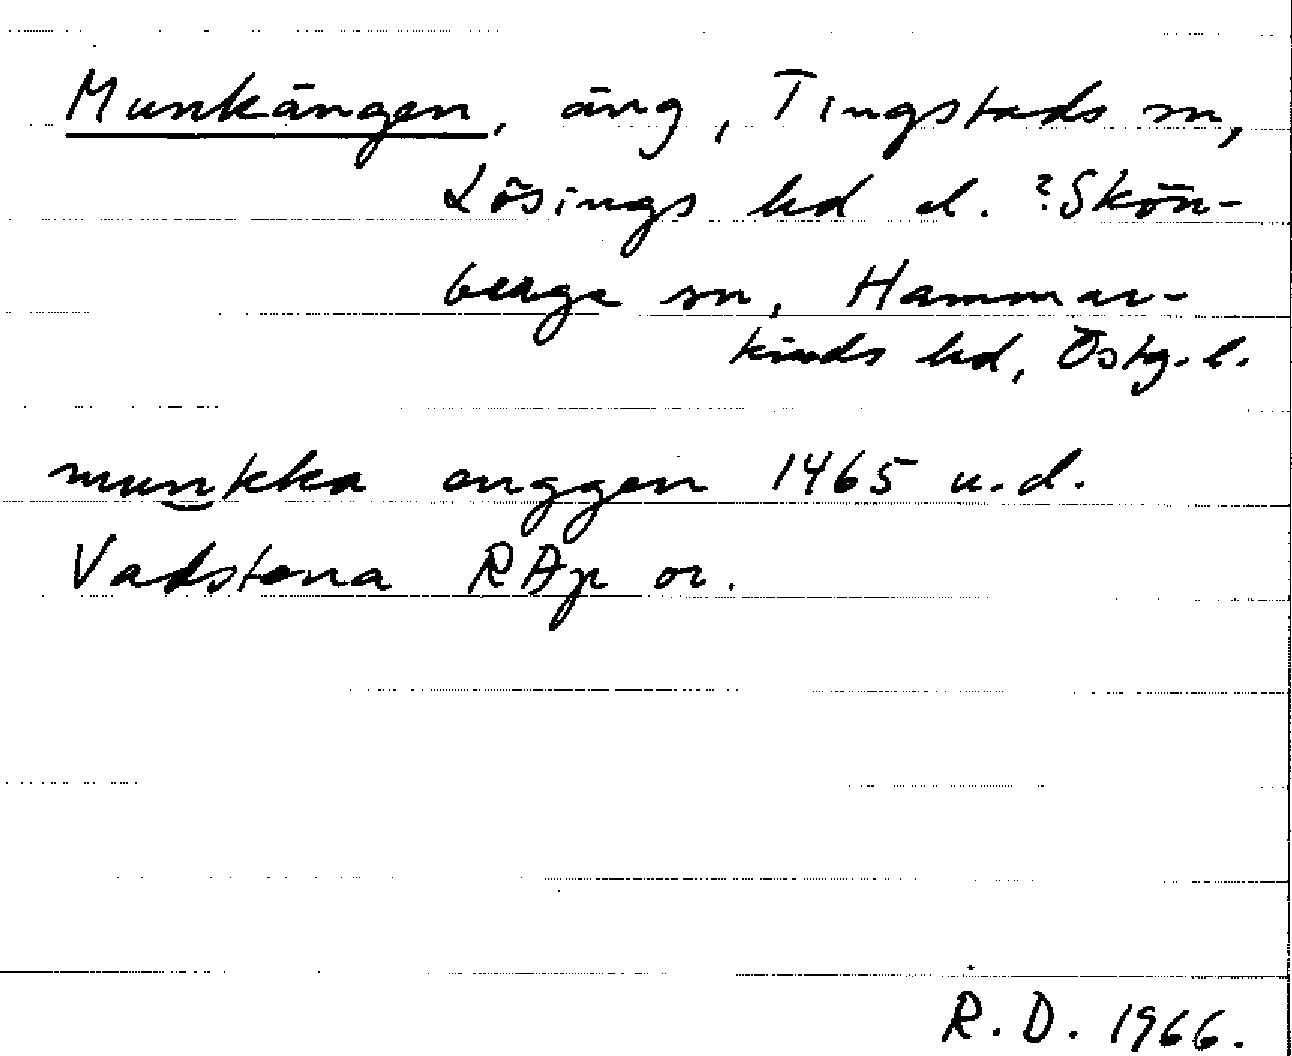 Munkängen, äng, Tingstads sn,
Lösings hd el. ?Skön-
berga sn, Hammar-
kinds hd, Östg. l.
munkka enggen 1465 u.d.
Vadstena RAp or.
R. D. 1966.